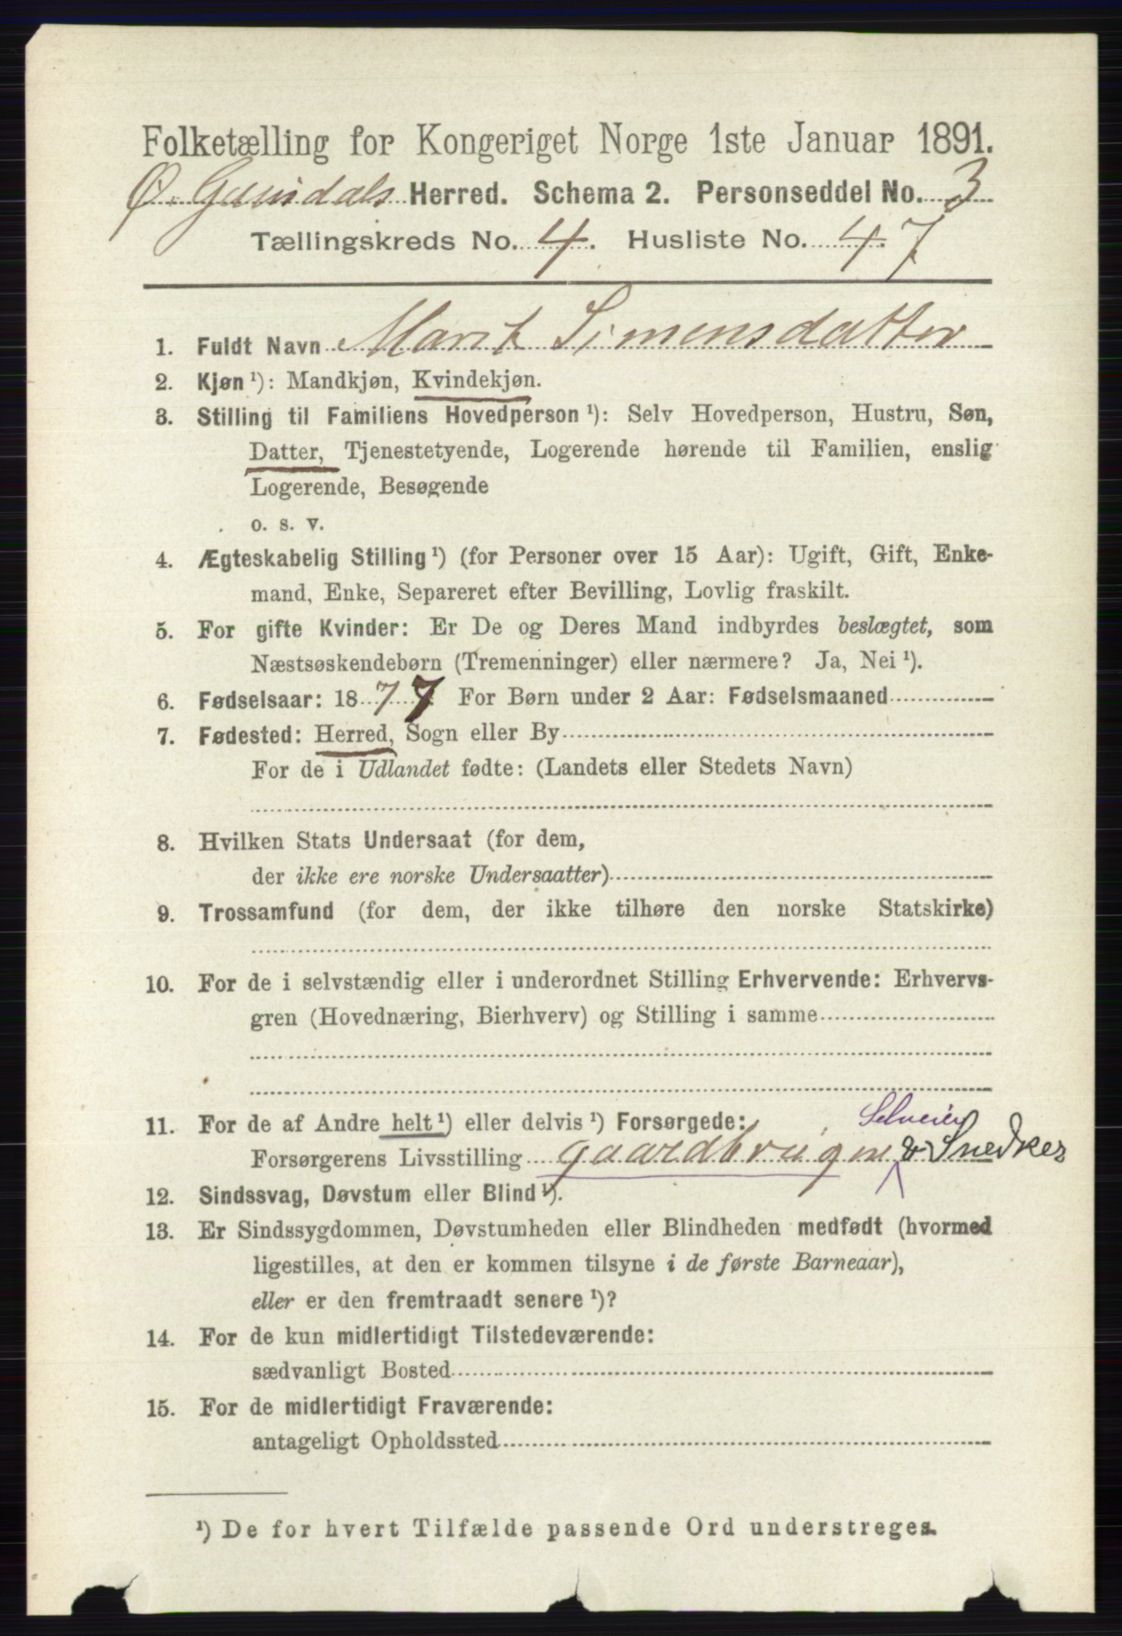 Folketælling for Kongeriget Norge 1ste Januar 1891.
Ø. Gausdals Herred. Schema 2. Personseddel No. 3
Tællingskreds No. 4. Husliste No. 47
1. Fuldt Navn Marit Simensdatter
2. Kjøn ¹): Mandkjøn, Kvindekjøn.
3. Stilling til Familiens Hovedperson ¹): Selv Hovedperson, Hustru, Søn,
Datter, Tjenestetyende, Logerende hørende til Familien, enslig
Logerende, Besøgende
o. s. v.
4. Ægteskabelig Stilling ¹) (for Personer over 15 Aar): Ugift, Gift, Enke-
mand, Enke, Separeret efter Bevilling, Lovlig fraskilt.
5. For gifte Kvinder: Er De og Deres Mand indbyrdes beslægtet, som
Næstsøskendebørn (Tremenninger) eller nærmere? Ja, Nei ¹).
6. Fødselsaar: 1877 For Børn under 2 Aar: Fødselsmaaned
7. Fødested: Herred, Sogn eller By
For de i Udlandet fødte: (Landets eller Stedets Navn)
8. Hvilken Stats Undersaat (for dem,
der ikke ere norske Undersaatter)
9. Trossamfund (for dem, der ikke tilhøre den norske Statskirke)
10. For de i selvstændig eller i underordnet Stilling Erhvervende: Erhvervs-
gren (Hovednæring, Bierhverv) og Stilling i samme
11. For de af Andre helt ¹) eller delvis ¹) Forsørgede: Selveier
Forsørgerens Livsstilling gaardbruger & Snedker
12. Sindssvag, Døvstum eller Blind ¹).
13. Er Sindssygdommen, Døvstumheden eller Blindheden medfødt (hvormed
ligestilles, at den er kommen tilsyne i de første Barneaar),
eller er den fremtraadt senere ¹)?
14. For de kun midlertidigt Tilstedeværende:
sædvanligt Bosted
15. For de midlertidigt Fraværende:
antageligt Opholdssted
¹) De for hvert Tilfælde passende Ord understreges.